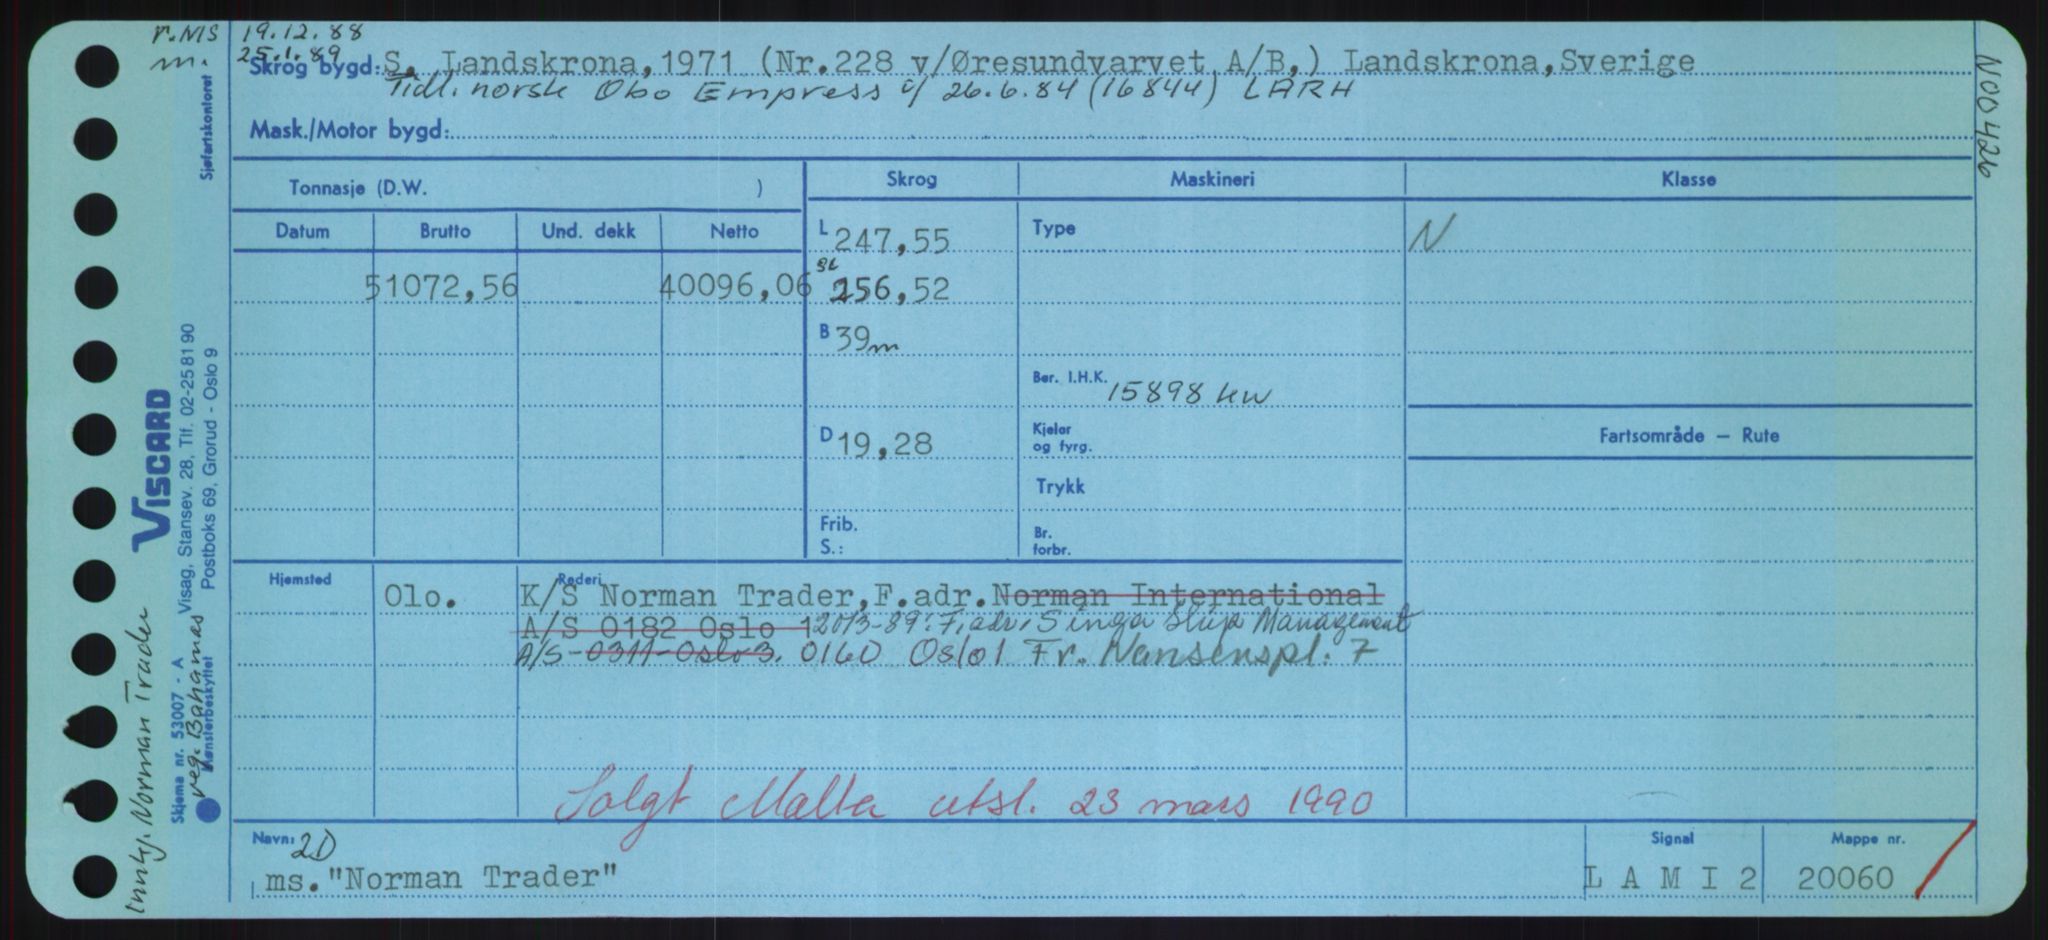 r. NIS 19.12.88
m. 25.1.89
Skrog bygd: S. Landskrona, 1971 (Nr.228 v/Øresundvarvet A/B,) Landskrona, Sverige
Tidl. norsk Obo Empress 26.6.84 (16844) LARH
Mask./Motor bygd:
Tonnasje (D.W. )
Skrog
Maskineri
Klasse
Datum Brutto Und. dekk Netto
51072,56 40096,06
L 247,55
256,52
B 39 m
D 19,28
Frib.
S.:
Type
Ber. I.H.K. 15898 kw
Kjeler
og fyrg.
Trykk
Br.
forbr.
N
Fartsområde – Rute
Hjemsted
Rederi
Olo. K/S Norman Trader, F.adr. Norman International
A/S 0182 Oslo 1 20/3-89: F.adr. Singa Ship Management
A/S - 0311 - Oslo 3. 0160 Oslo 1 Fr. Nansenspl. 7
Solgt Malta utsl. 23 mars 1990
Navn: 2D
ms. "Norman Trader"
Signal
L A M I 2
Mappe nr.
20060
N00426
Sjøfartskontoret
VISCARD
Visag, Stansev. 28, Tlf. 02-25 81 90
Postboks 69, Grorud - Oslo 9
Skjema nr. 53007 - A
Mønsterbeskyttet
reg. Bahamas
Norman Trader